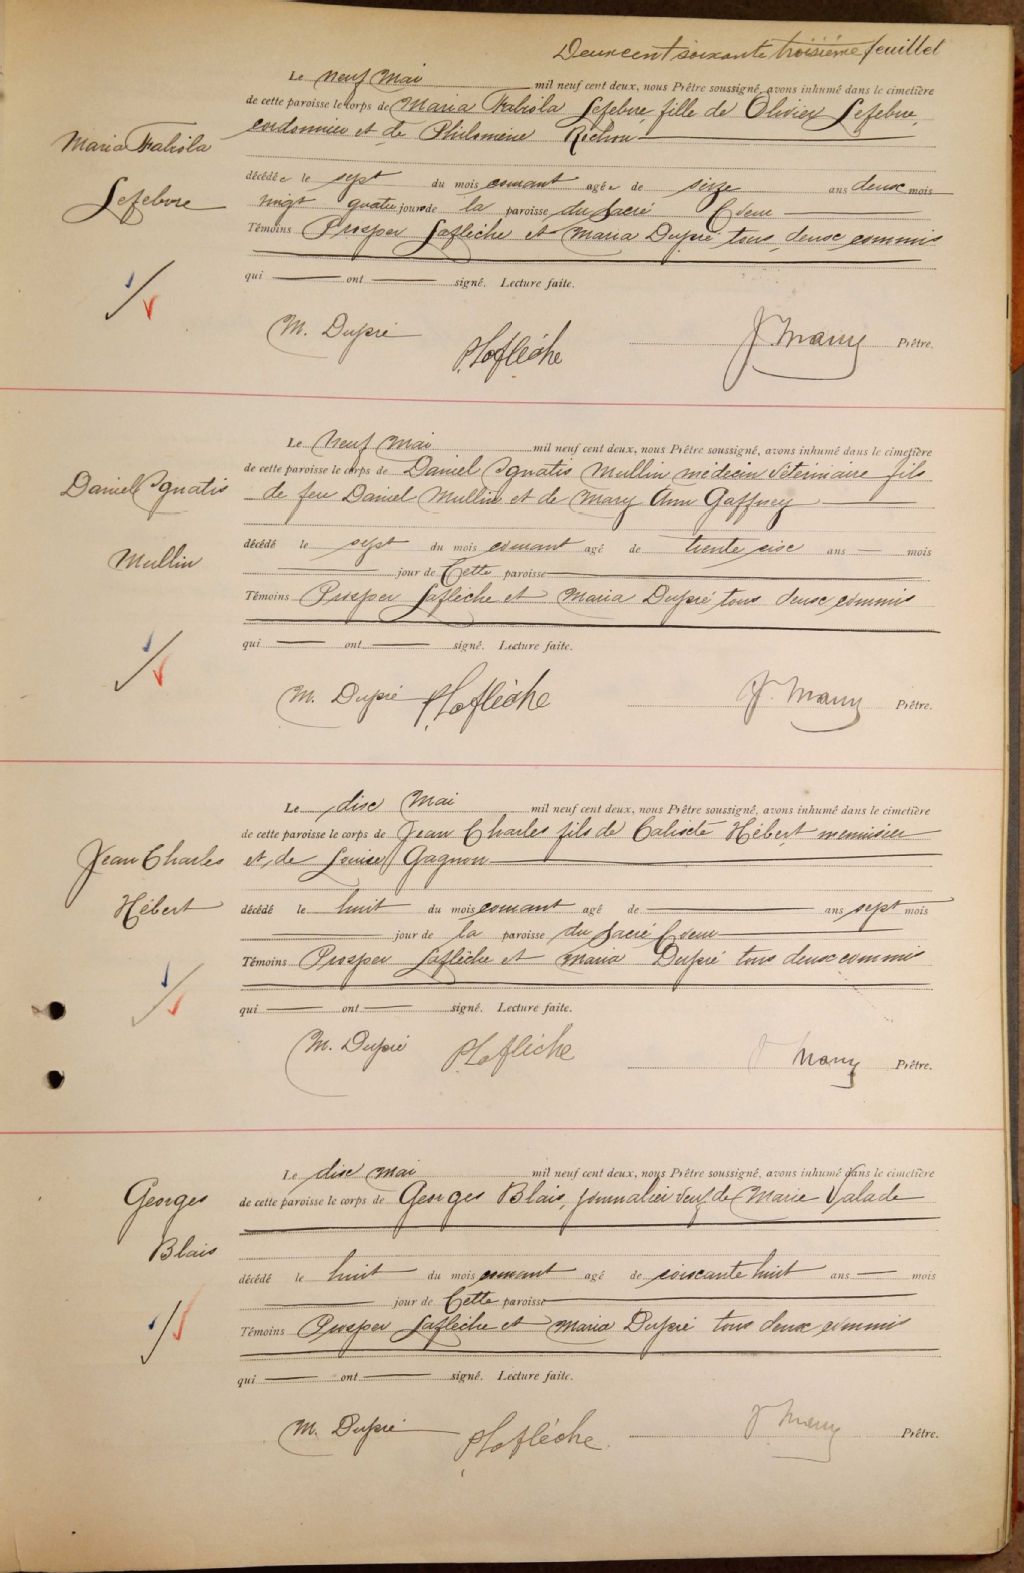 Deux cent soixante troisième feuillet
Le neuf Mai mil neuf cent deux, nous Prêtre soussigné, avons inhumé dans le cimetière
de cette paroisse le corps de Maria Fabiola Lefebvre fille de Olivier Lefebvre,
Maria Fabiola
Lefebvre
cordonnier et de Philomène Richou
décédée le sept du mois courant agée de seize ans deux mois
vingt quatre jours de la paroisse du Sacré Coeur
Témoins Prosper Laflèche et Maria Dupré tous deux commis
qui ont signé. Lecture faite.
M. Dupré PLaflèche J Prêtre.
Le neuf Mai mil neuf cent deux, nous Prêtre soussigné, avons inhumé dans le cimetière
de cette paroisse le corps de Daniel Ignatis Mullin médecin vétérinaire fils
Daniel Ignatis
Mullin
de feu Daniel Mullin et de Mary Ann Gaffney
décédé le sept du mois courant agé de trente six ans mois
jour de Cette paroisse
Témoins Prosper Laflèche et Maria Dupré tous deux commis
qui ont signé. Lecture faite.
M. Dupré PLaflèche J. Prêtre.
Le dix Mai mil neuf cent deux, nous Prêtre soussigné, avons inhumé dans le cimetière
de cette paroisse le corps de Jean Charles fils de Calixte Hébert menuisier
Jean Charles
Hébert
et de Louise Gagnon
décédé le huit du mois courant agé de ans sept mois
jour de la paroisse du Sacré Coeur
Témoins Prosper Laflèche et Maria Dupré tous deux commis
qui ont signé. Lecture faite.
M. Dupré PLaflèche J Prêtre.
Le dix Mai mil neuf cent deux, nous Prêtre soussigné, avons inhumé dans le cimetière
de cette paroisse le corps de Georges Blais, journalier veuf de Marie Valade
Georges
Blais
décédé le huit du mois courant agé de soixante huit ans mois
jour de Cette paroisse
Témoins Prosper Laflèche et Maria Dupré tous deux commis
qui ont signé. Lecture faite.
M. Dupré PLaflèche J Prêtre.